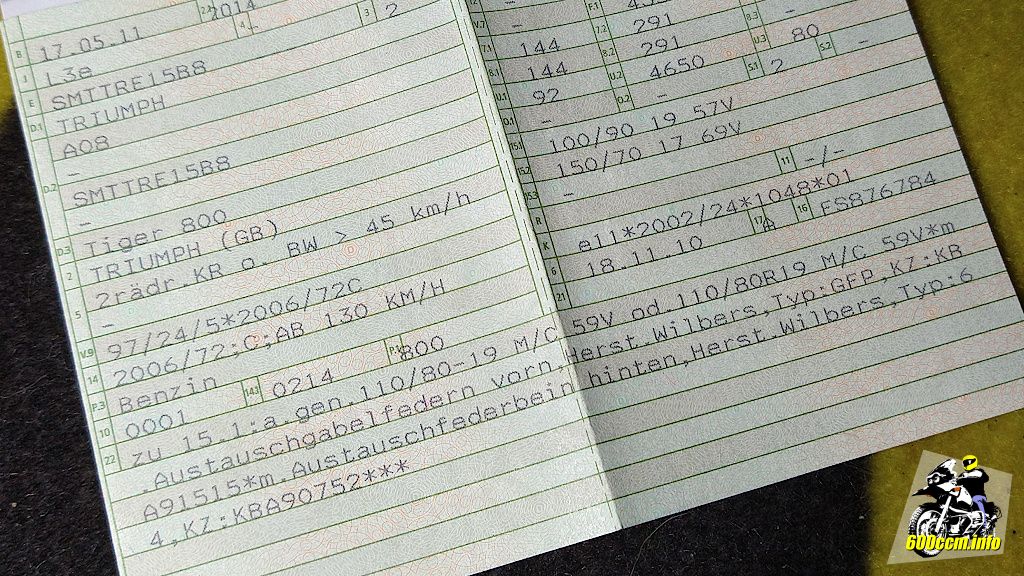 B 17.05.11 2014
J L3e 4 3 2
E SMTTRE15B8
D.1 TRIUMPH
A08
D.2 -
SMTTRE15B8
-
D.3 Tiger 800
2 TRIUMPH (GB)
5 2rädr.KR o. BW > 45 km/h
-
V.9 97/24/5*2006/72C
14 2006/72;C;AB 130 KM/H
P.3 Benzin P.1 800
10 0001 14.1 0214
V.7 - F.1
7.1 144 7.2 291 8.3 -
8.1 144 8.2 291 U.3 80
U.1 92 U.2 4650 S.1 2 S.2 -
O.1 - O.2 -
15.1 100/90 19 57V
15.2 150/70 17 69V
15.3 -
R 11 -/-
K e11*2002/24*1048*01
6 18.11.10 17 A 16 FS876784
21
22 zu 15.1:a.gen.110/80-19 M/C 59V od.110/80R19 M/C 59V*m
.Austauschgabelfedern vorn,Herst.Wilbers,Typ:GFP,KZ:KB
A91515*m.Austauschfederbein hinten,Herst.Wilbers,Typ:6
4,KZ:KBA90752***
600ccm.info